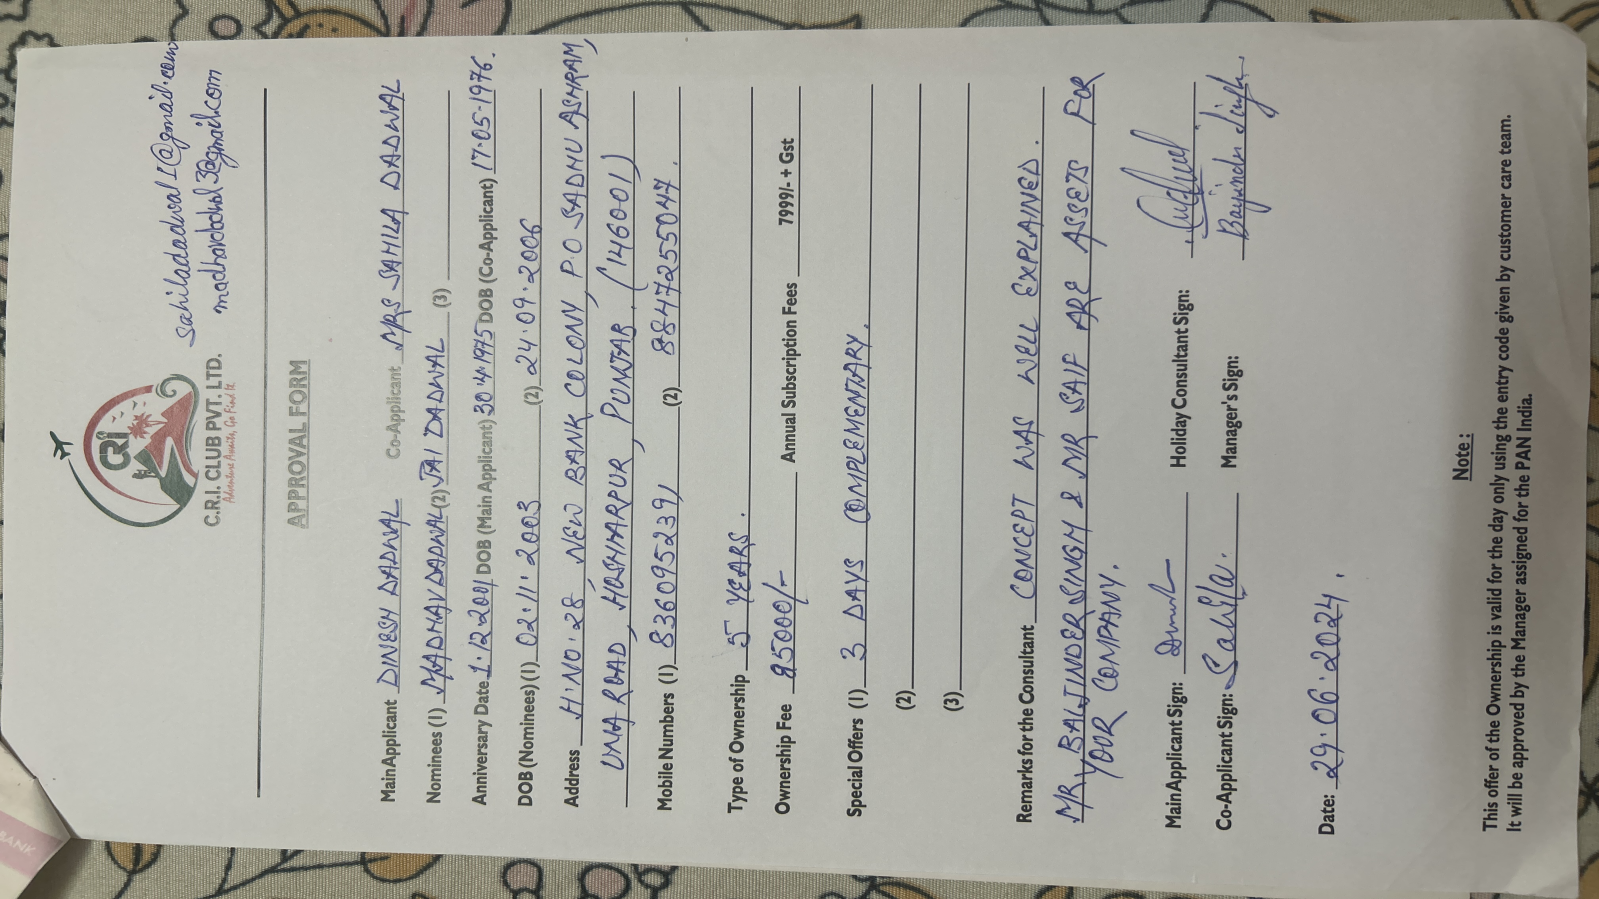 sahiladadwal1@gmail.com
madhavdadwal3@gmail.com
CRI
C.R.I. CLUB PVT. LTD.
Adventure Awaits, Go Find It.
APPROVAL FORM
Main Applicant DINESH DADWAL Co-Applicant MRS SAHILA DADWAL
Nominees (1) MADHAV DADWAL (2) JAI DADWAL (3)
Anniversary Date 1.12.2001 DOB (Main Applicant) 30.4.1975 DOB (Co-Applicant) 17.05.1976.
DOB (Nominees) (1) 02.11.2003 (2) 24.09.2006
Address H.NO.28, NEW BANK COLONY, P.O SADHU ASHRAM,
UNA ROAD, HOSHIARPUR, PUNJAB. (146001)
Mobile Numbers (1) 8360952391 (2) 8847255047.
Type of Ownership 5 YEARS.
Ownership Fee 95000/- Annual Subscription Fees 7999/- + Gst
Special Offers (1) 3 DAYS COMPLEMENTARY.
(2)
(3)
Remarks for the Consultant CONCEPT WAS WELL EXPLAINED.
MR BALJINDER SINGH & MR SAIF ARE ASSETS FOR
YOUR COMPANY.
Main Applicant Sign: Holiday Consultant Sign:
Co-Applicant Sign: Sahila. Manager's Sign: Baljinder Singh
Date: 29.06.2024.
Note :
This offer of the Ownership is valid for the day only using the entry code given by customer care team.
It will be approved by the Manager assigned for the PAN India.
BANK